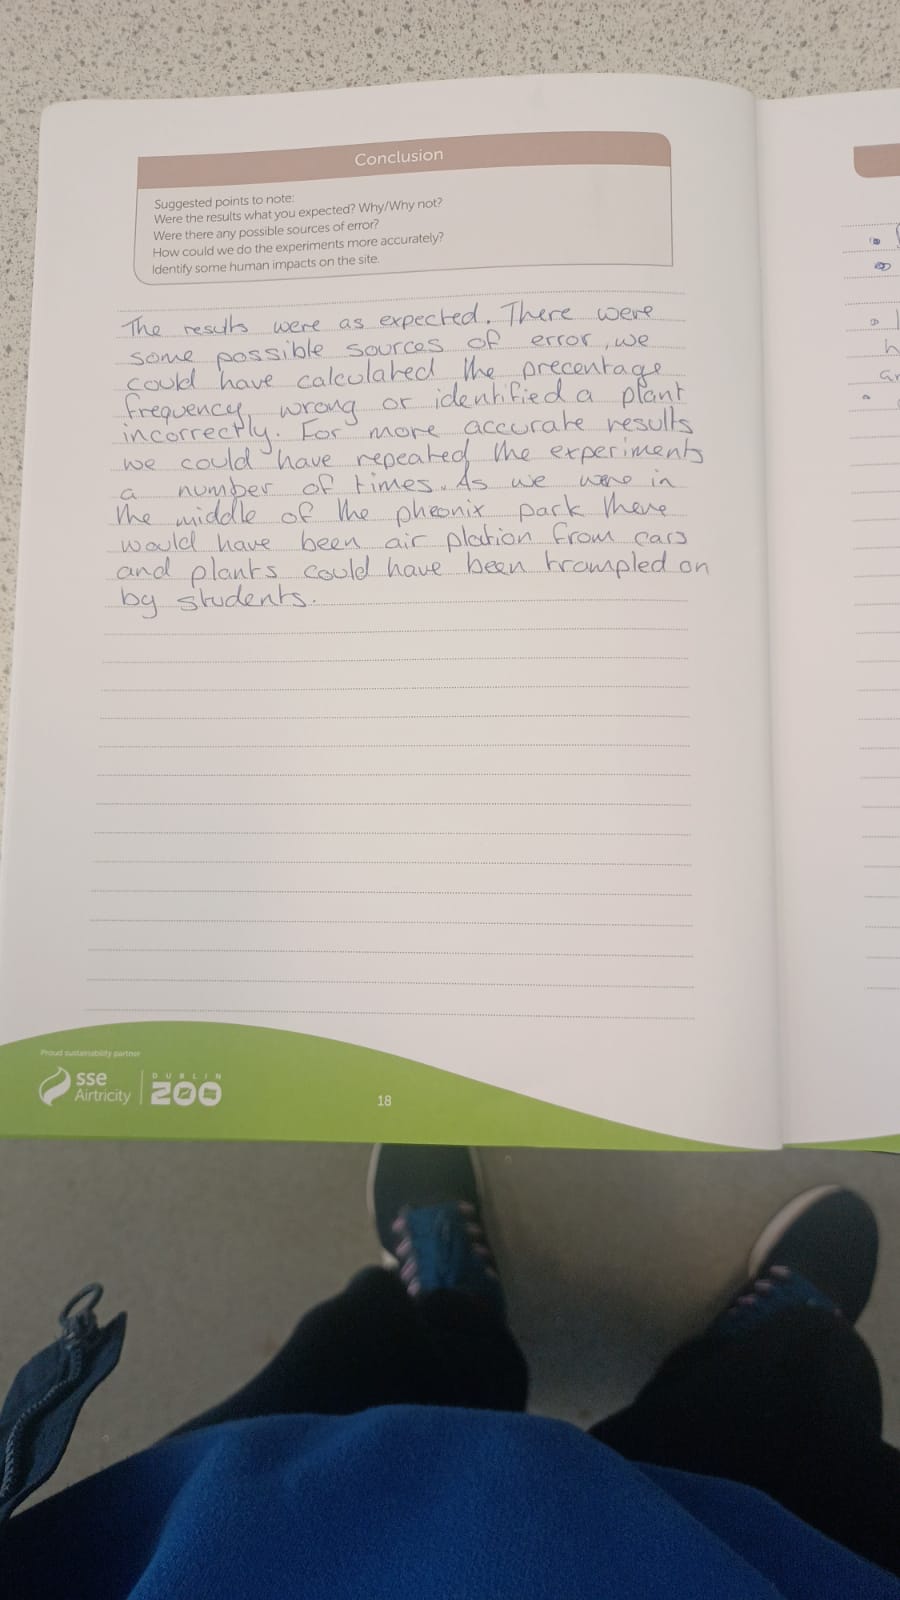 Conclusion
Suggested points to note:
Were the results what you expected? Why/Why not?
Were there any possible sources of error?
How could we do the experiments more accurately?
Identify some human impacts on the site.
The results were as expected. There were
some possible sources of error, we
could have calculated the precentage
frequency, wrong or identified a plant
incorrectly. For more accurate results
we could have repeated the experiments
a number of times. As we were in
the middle of the pheonix park there
would have been air plution from cars
and plants could have been trampled on
by students.
Proud sustainability partner
sse
Airtricity
DUBLIN
ZOO
18